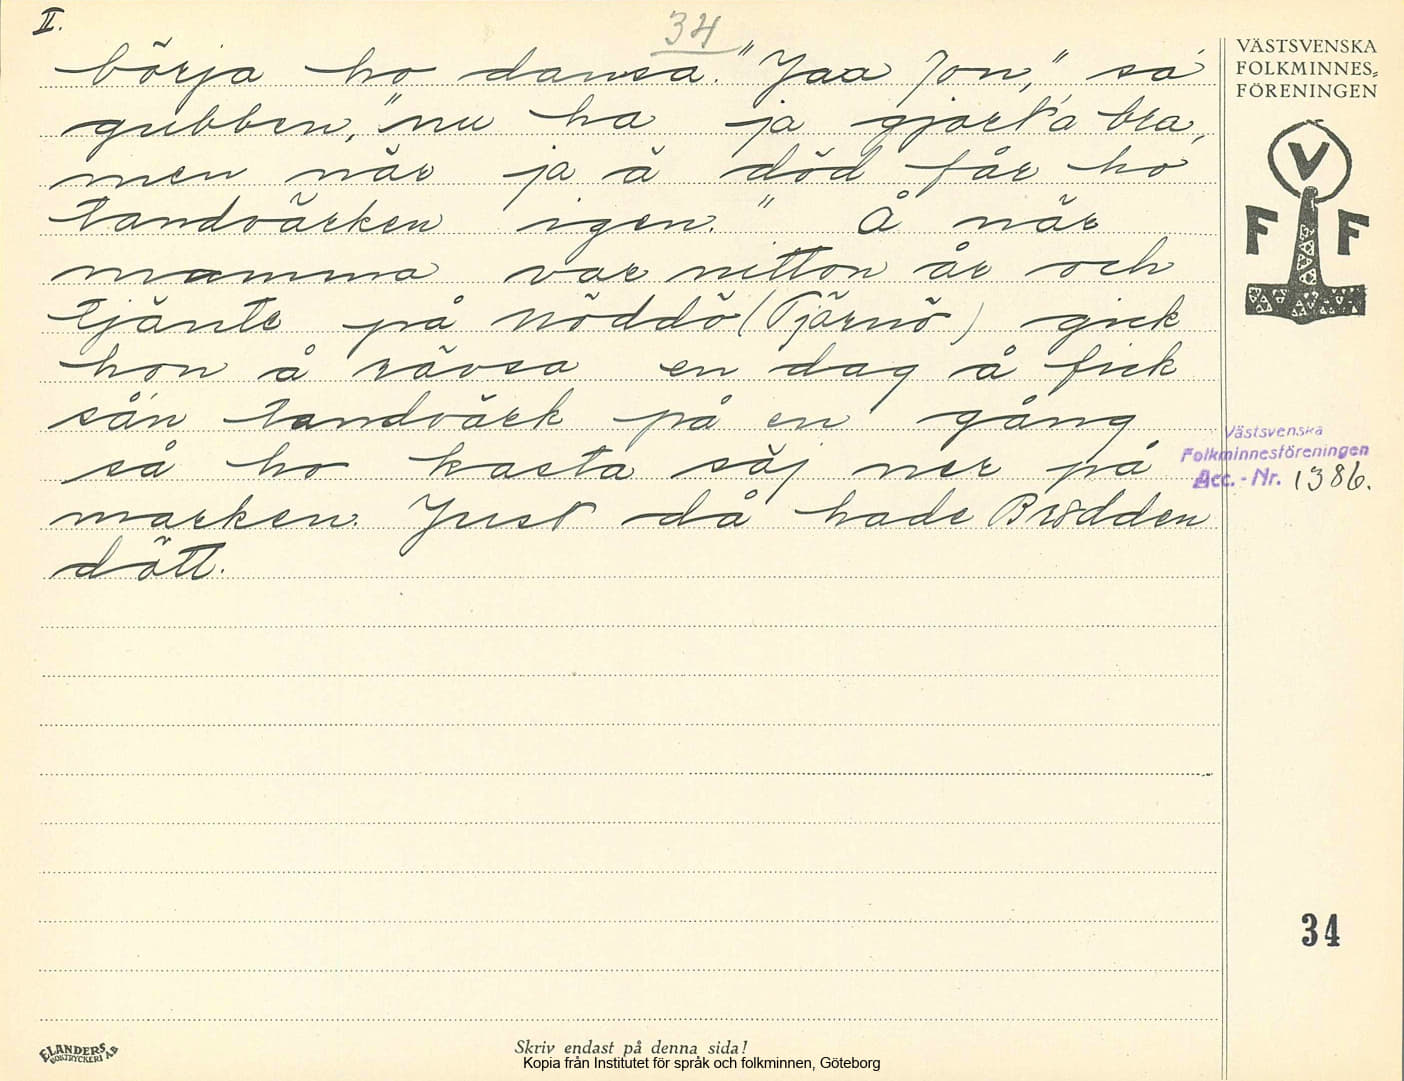 II.
34
börja ho dansa. "Jaa Jon," sa
gubben, "nu ha ja gjort'a bra,
men när ja ä död får ho
tandvärken igen." Å när
mamma var nitton år och
tjänte på Nöddö (Tjärnö) gick
hon å rävsa en dag å fick
sån tandvärk på en gång
så ho kasta säj ner på
marken. Just då hade Brödden
dött.
VÄSTSVENSKA
FOLKMINNES-
FÖRENINGEN
V
F F
Västsvenska
Folkminnesföreningen
Acc. - Nr. 1386.
34
ELANDERS
BOKTRYCKERI AB
Skriv endast på denna sida!
Kopia från Institutet för språk och folkminnen, Göteborg